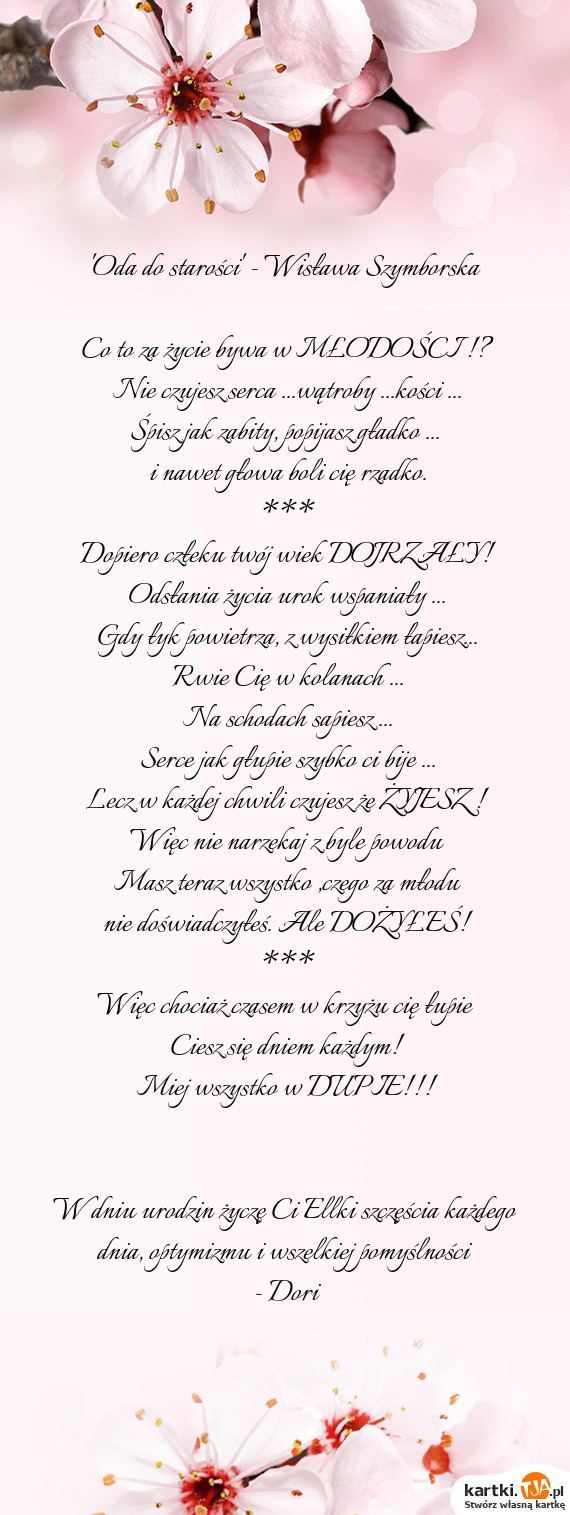 'Oda do starości' - Wisława Szymborska
Co to za życie bywa w MŁODOŚCI !?
Nie czujesz serca ...wątroby ...kości ...
Śpisz jak zabity, popijasz gładko ...
i nawet głowa boli cię rzadko.
***
Dopiero człeku twój wiek DOJRZAŁY!
Odsłania życia urok wspaniały ...
Gdy łyk powietrza, z wysiłkiem łapiesz...
Rwie Cię w kolanach ...
Na schodach sapiesz ...
Serce jak głupie szybko ci bije ...
Lecz w każdej chwili czujesz że ŻYJESZ !
Więc nie narzekaj z byle powodu
Masz teraz wszystko ,czego za młodu
nie doświadczyłeś. Ale DOŻYŁEŚ!
***
Więc chociaż czasem w krzyżu cię łupie
Ciesz się dniem każdym!
Miej wszystko w DUPIE!!!
W dniu urodzin życzę Ci Ellki szczęścia każdego
dnia, optymizmu i wszelkiej pomyślności
- Dori
kartki.TJA.pl
Stwórz własną kartkę